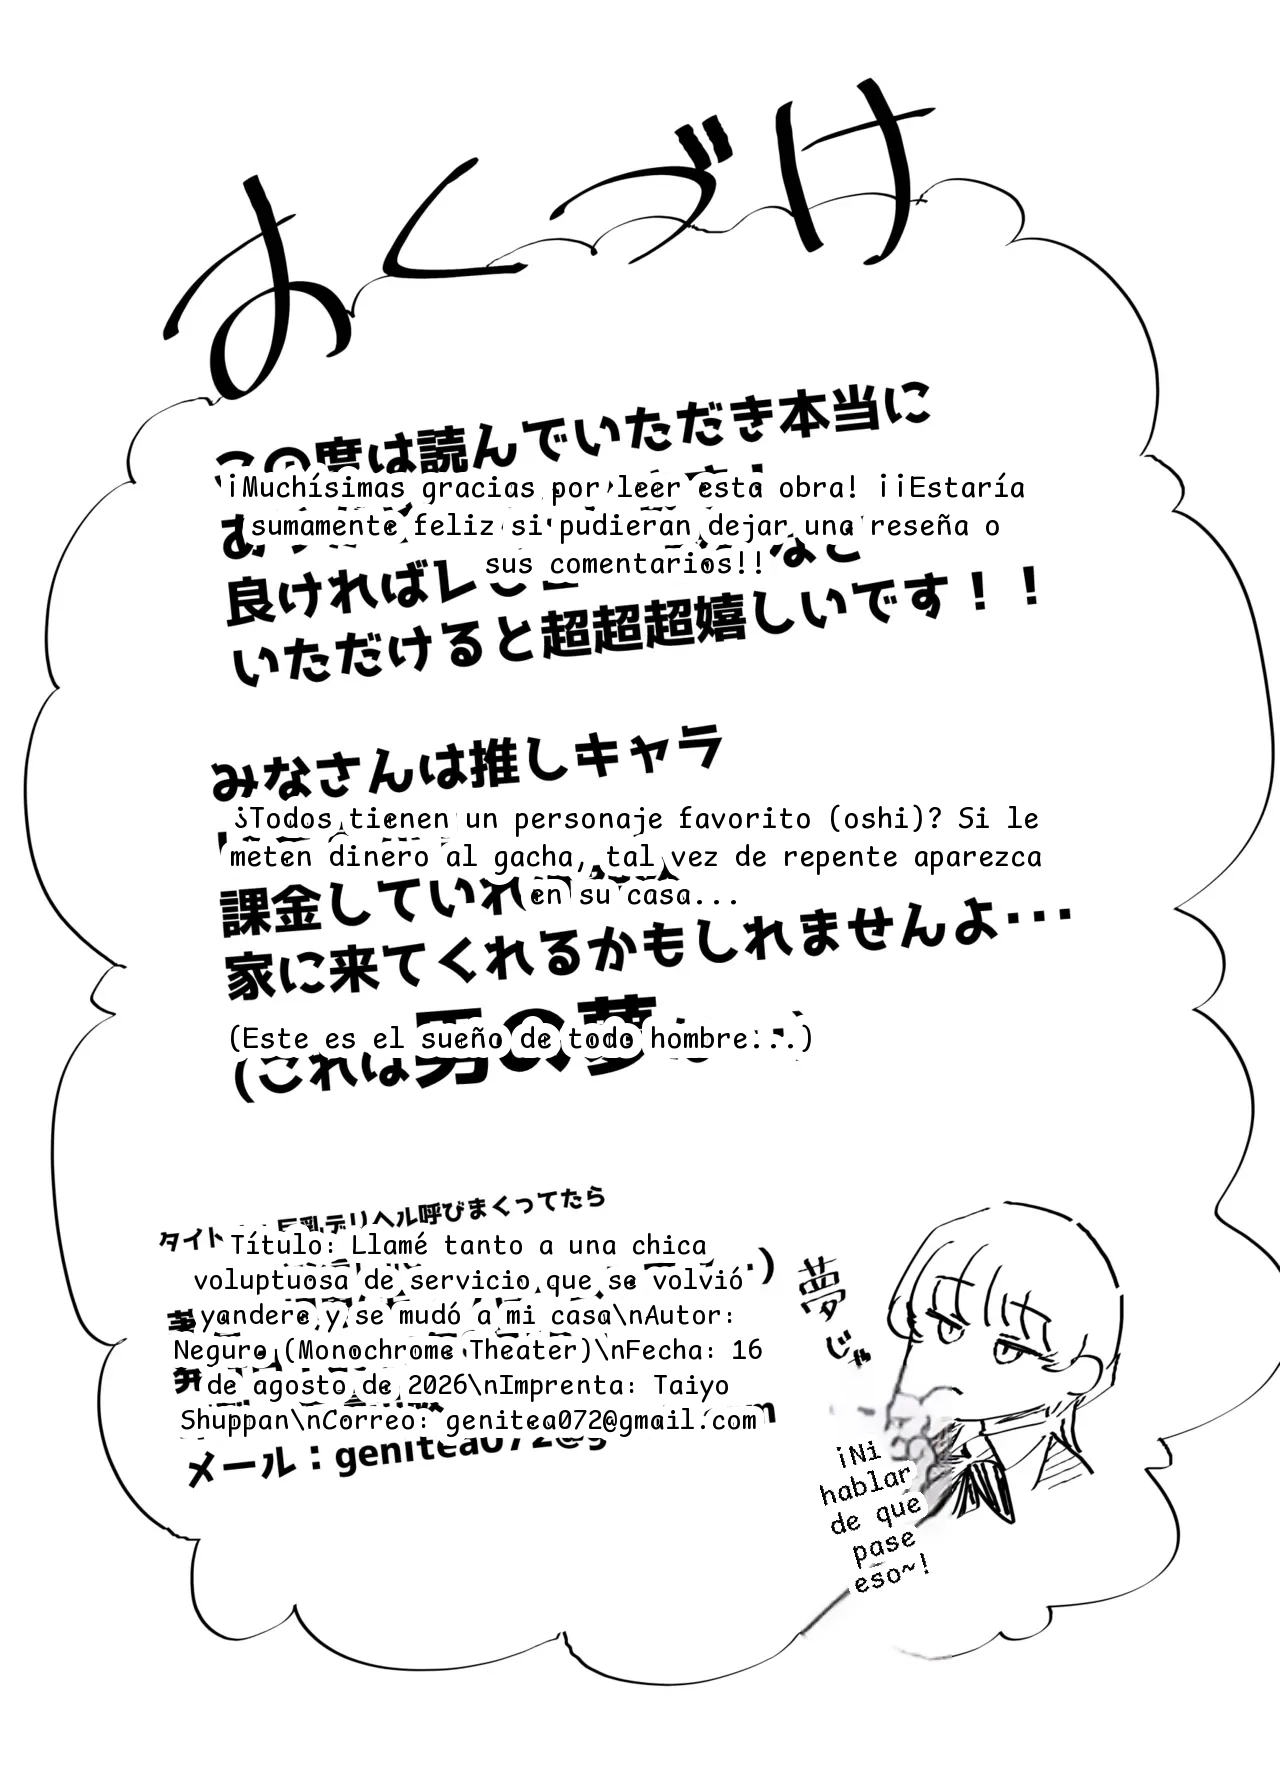 おくづけ
この度は読んでいただき本当に
¡Muchísimas gracias por leer esta obra! ¡¡Estaría
sumamente feliz si pudieran dejar una reseña o
sus comentarios!!
良ければレビュー
いただけると超超超嬉しいです！！
みなさんは推しキャラ
¿Todos tienen un personaje favorito (oshi)? Si le
meten dinero al gacha, tal vez de repente aparezca
en su casa...
課金していれ
家に来てくれるかもしれませんよ･･･
(Este es el sueño de todo hombre...)
(これは男の夢
巨乳デリヘル呼びまくってたら
タイト
Título: Llamé tanto a una chica
voluptuosa de servicio que se volvió
yandere y se mudó a mi casa\nAutor:
Neguro (Monochrome Theater)\nFecha: 16
de agosto de 2026\nImprenta: Taiyo
Shuppan\nCorreo: genitea072@gmail.com
メール：genitea072@g
夢じゃ
¡Ni
hablar
de que
pase
eso~!